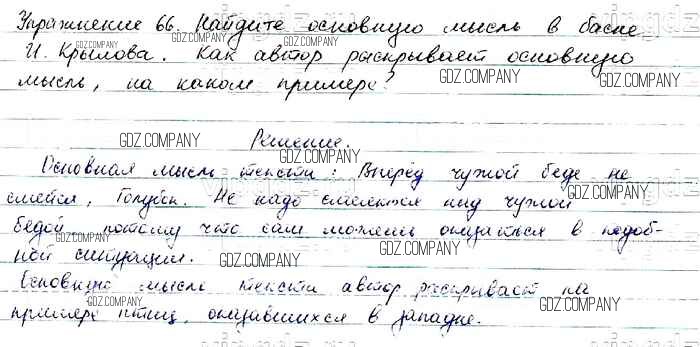 Упражнение 66. Найдите основную мысль в басне
И. Крылова. Как автор раскрывает основную
мысль, на каком примере?
Решение.
Основная мысль текста: Вперёд чужой беде не
смейся, Голубок. Не надо смеяться над чужой
бедой, потому что сам можешь оказаться в подоб-
ной ситуации.
Основную мысль текста автор раскрывает на
примере птиц, оказавшихся в западне.
GDZ.COMPANY
GDZ.COMPANY
GDZ.COMPANY
GDZ.COMPANY
GDZ.COMPANY
GDZ.COMPANY
GDZ.COMPANY
GDZ.COMPANY
GDZ.COMPANY
GDZ.COMPANY
GDZ.COMPANY
GDZ.COMPANY
GDZ.COMPANY